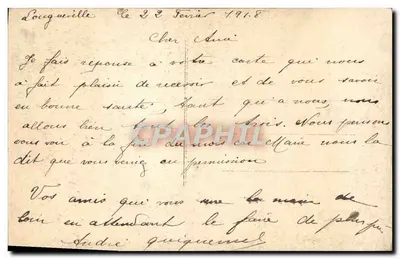 Longueville le 22 Fevrier 1918
Cher Ami
Je fais reponse à votre carte qui nous
a fait plaisir de recevoir et de vous savoir
en bonne santé, tant qu'a nous, nous
allons bien tout les trois. Nous pensons
vous voir à la fin du mois la nous la
dit que vous venez en permission
Vos amis qui vous la main de
loin en attendant le faire de plus près
André
CPAPHIL.COM